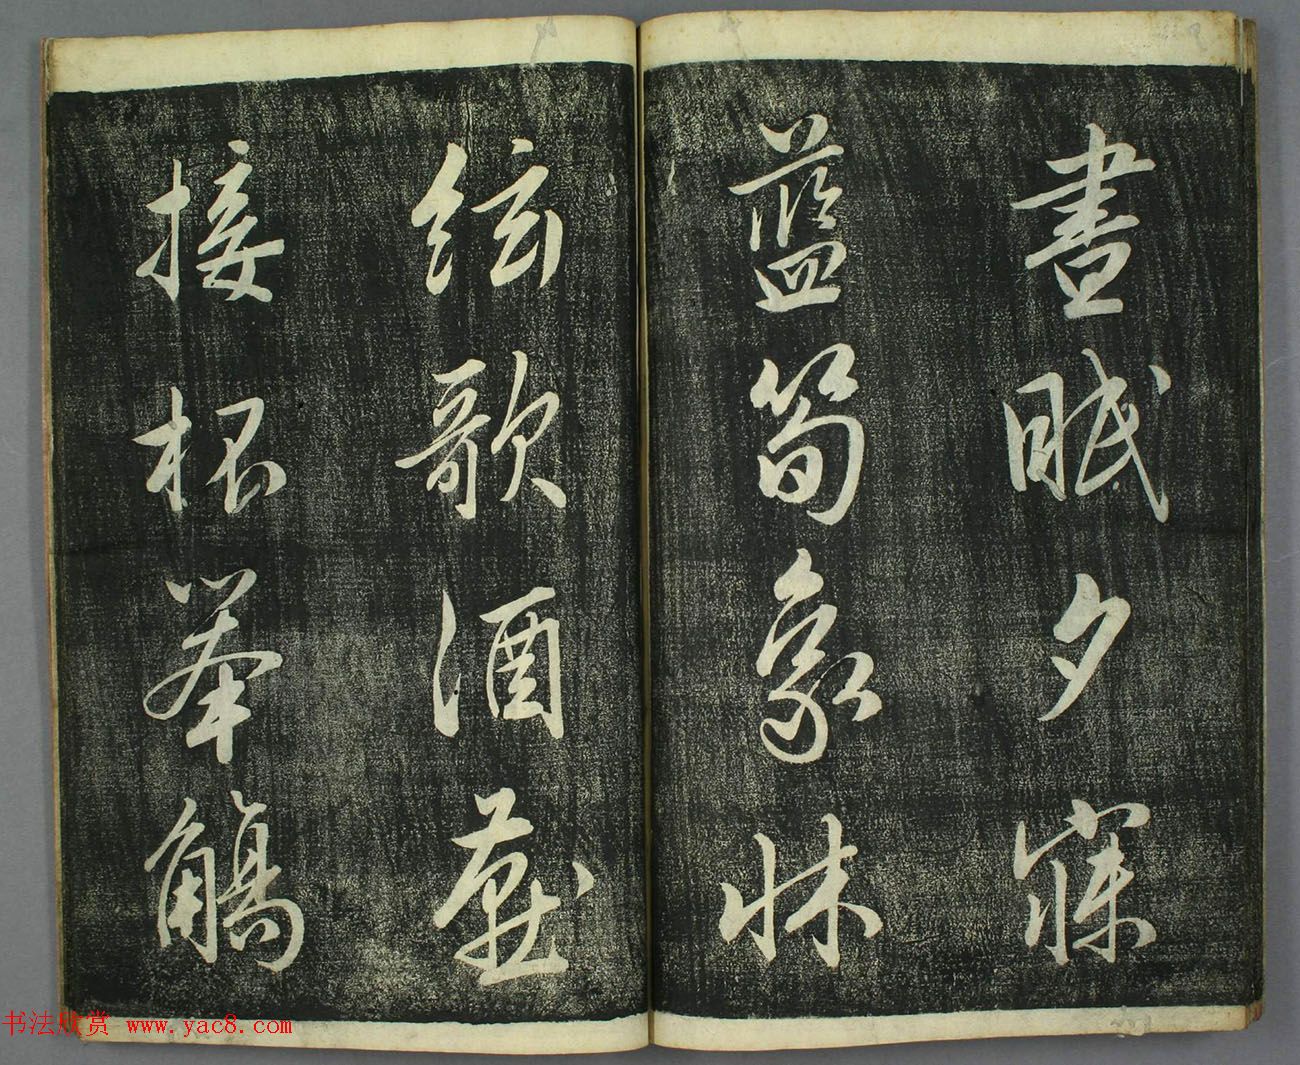 晝眠夕寐
藍筍象牀
絃歌酒讌
接杯舉觴
书法欣赏 www.yac8.com